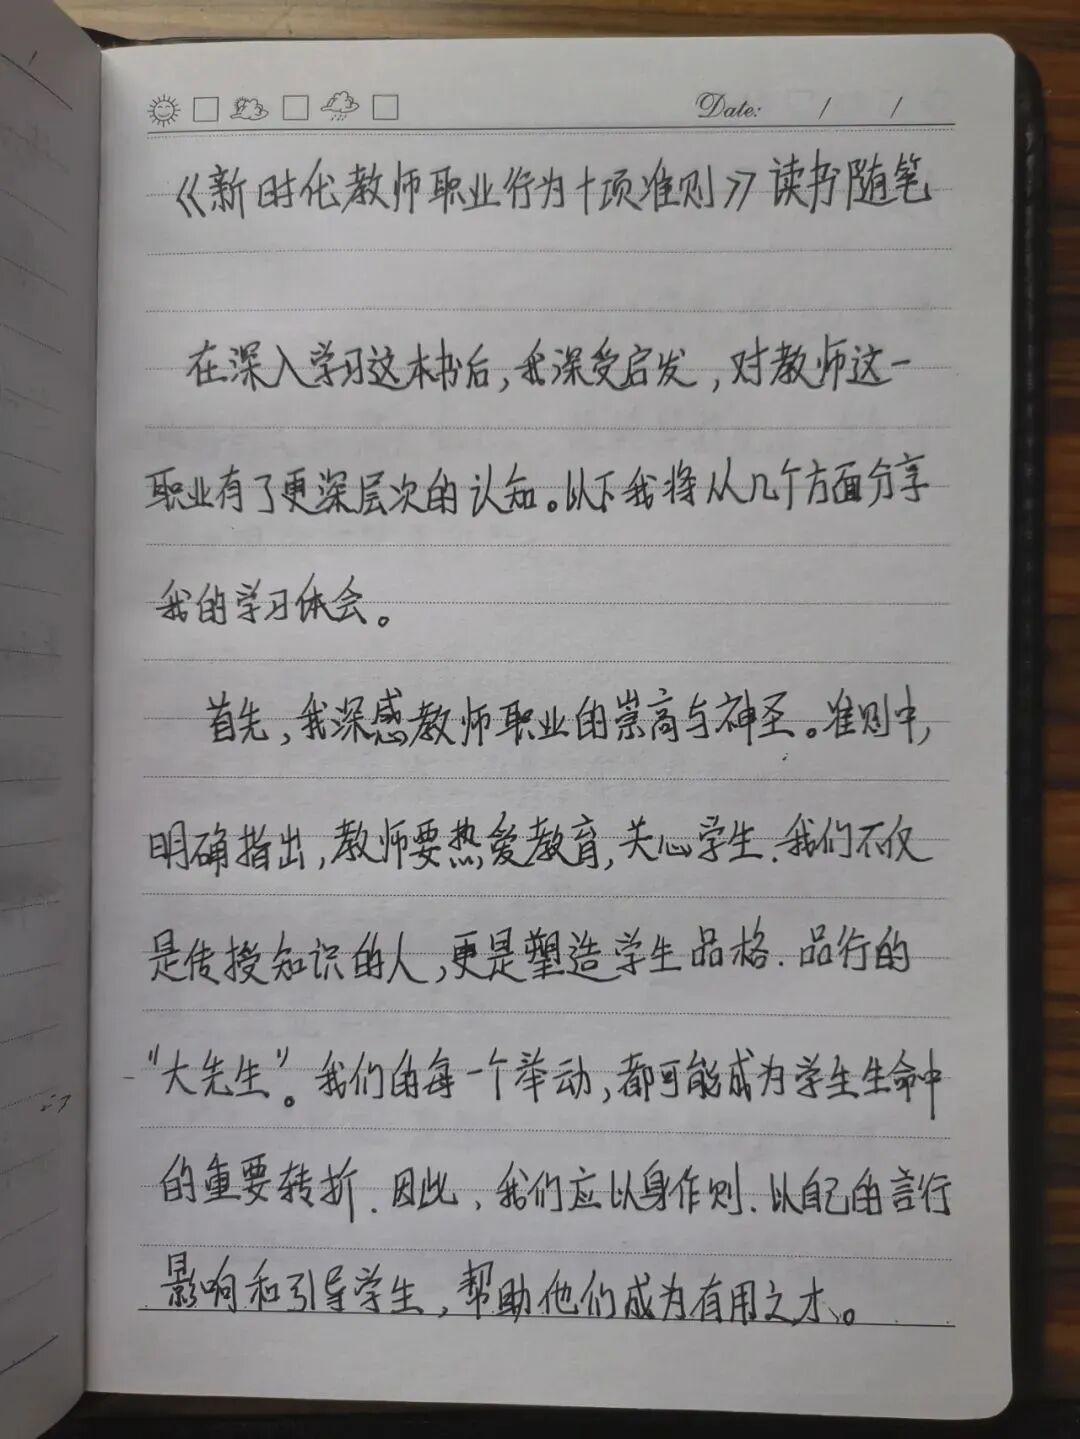 Date: / /
《新时代教师职业行为十项准则》读书随笔
在深入学习这本书后,我深受启发,对教师这一
职业有了更深层次的认知。以下我将从几个方面分享
我的学习体会。
首先,我深感教师职业的崇高与神圣。准则中,
明确指出,教师要热爱教育,关心学生.我们不仅
是传授知识的人,更是塑造学生品格.品行的
“大先生”。我们的每一个举动,都可能成为学生生命中
的重要转折.因此、我们应以身作则.以自己的言行
影响和引导学生,帮助他们成为有用之才。